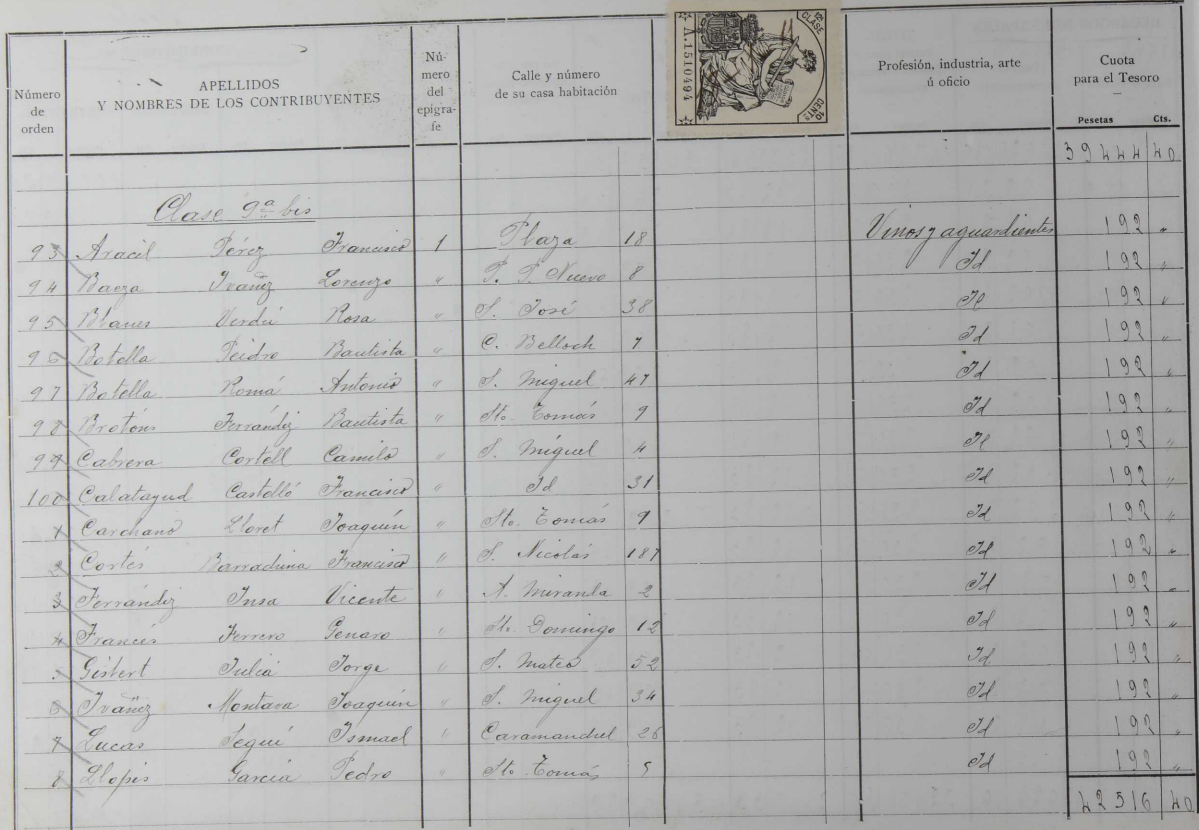 Número de orden | APELLIDOS Y NOMBRES DE LOS CONTRIBUYENTES | Nú- mero del epígra- fe | Calle y número de su casa habitación | Profesión, industria, arte ú oficio | Cuota para el Tesoro — Pesetas Cts.
12ª CLASE
A.1510494
10 CENTS
39444 40
Clase 9ª bis
93 Aracil Pérez Francisco 1 Plaza 18 Vinos y aguardientes 192 "
94 Baeza Ivañez Lorenzo " P. P. Nuevo 8 Id 192 "
95 Blanes Verdú Rosa " S. José 38 Id 192 "
96 Botella Peidro Bautista " C. Belloch 7 Id 192 "
97 Botella Romá Antonio " S. Miguel 47 Id 192 "
98 Brotóns Ferrándiz Bautista " Sto. Tomás 9 Id 192 "
99 Cabrera Cortell Camilo " S. Miguel 4 Id 192 "
100 Calatayud Castelló Francisco " Id 31 Id 192 "
1 Carchano Lloret Joaquín " Sto. Tomás 9 Id 192 "
2 Cortés Barrachina Francisco " S. Nicolás 187 Id 192 "
3 Ferrándiz Insa Vicente " A. Miranda 2 Id 192 "
4 Francés Ferrero Genaro " Sto. Domingo 12 Id 192 "
5 Gisbert Juliá Jorge " S. Mateo 52 Id 192 "
6 Ivañez Montava Joaquín " S. Miguel 34 Id 192 "
7 Lucas Seguí Ismael " Caramanchel 26 Id 192 "
8 Llopis García Pedro " Sto. Tomás 5 Id 192 "
42516 40